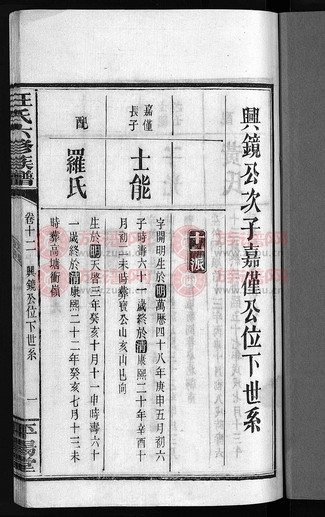 興鏡公次子嘉僅公位下世系
十一派
嘉僅
長子
士能
字開明生於明萬曆四十八年庚申五月初六
子時壽六十一歲終於清康熙二十年辛酉十
月初一未時葬寶公山亥山巳向
配
羅氏
生於明天啓三年癸亥十月十一申時壽六十
一歲終於清康熙二十二年癸亥七月十三未
時葬高塘衡嶺
汪氏六修族譜
卷十一
興鏡公位下世系
一
平陽堂